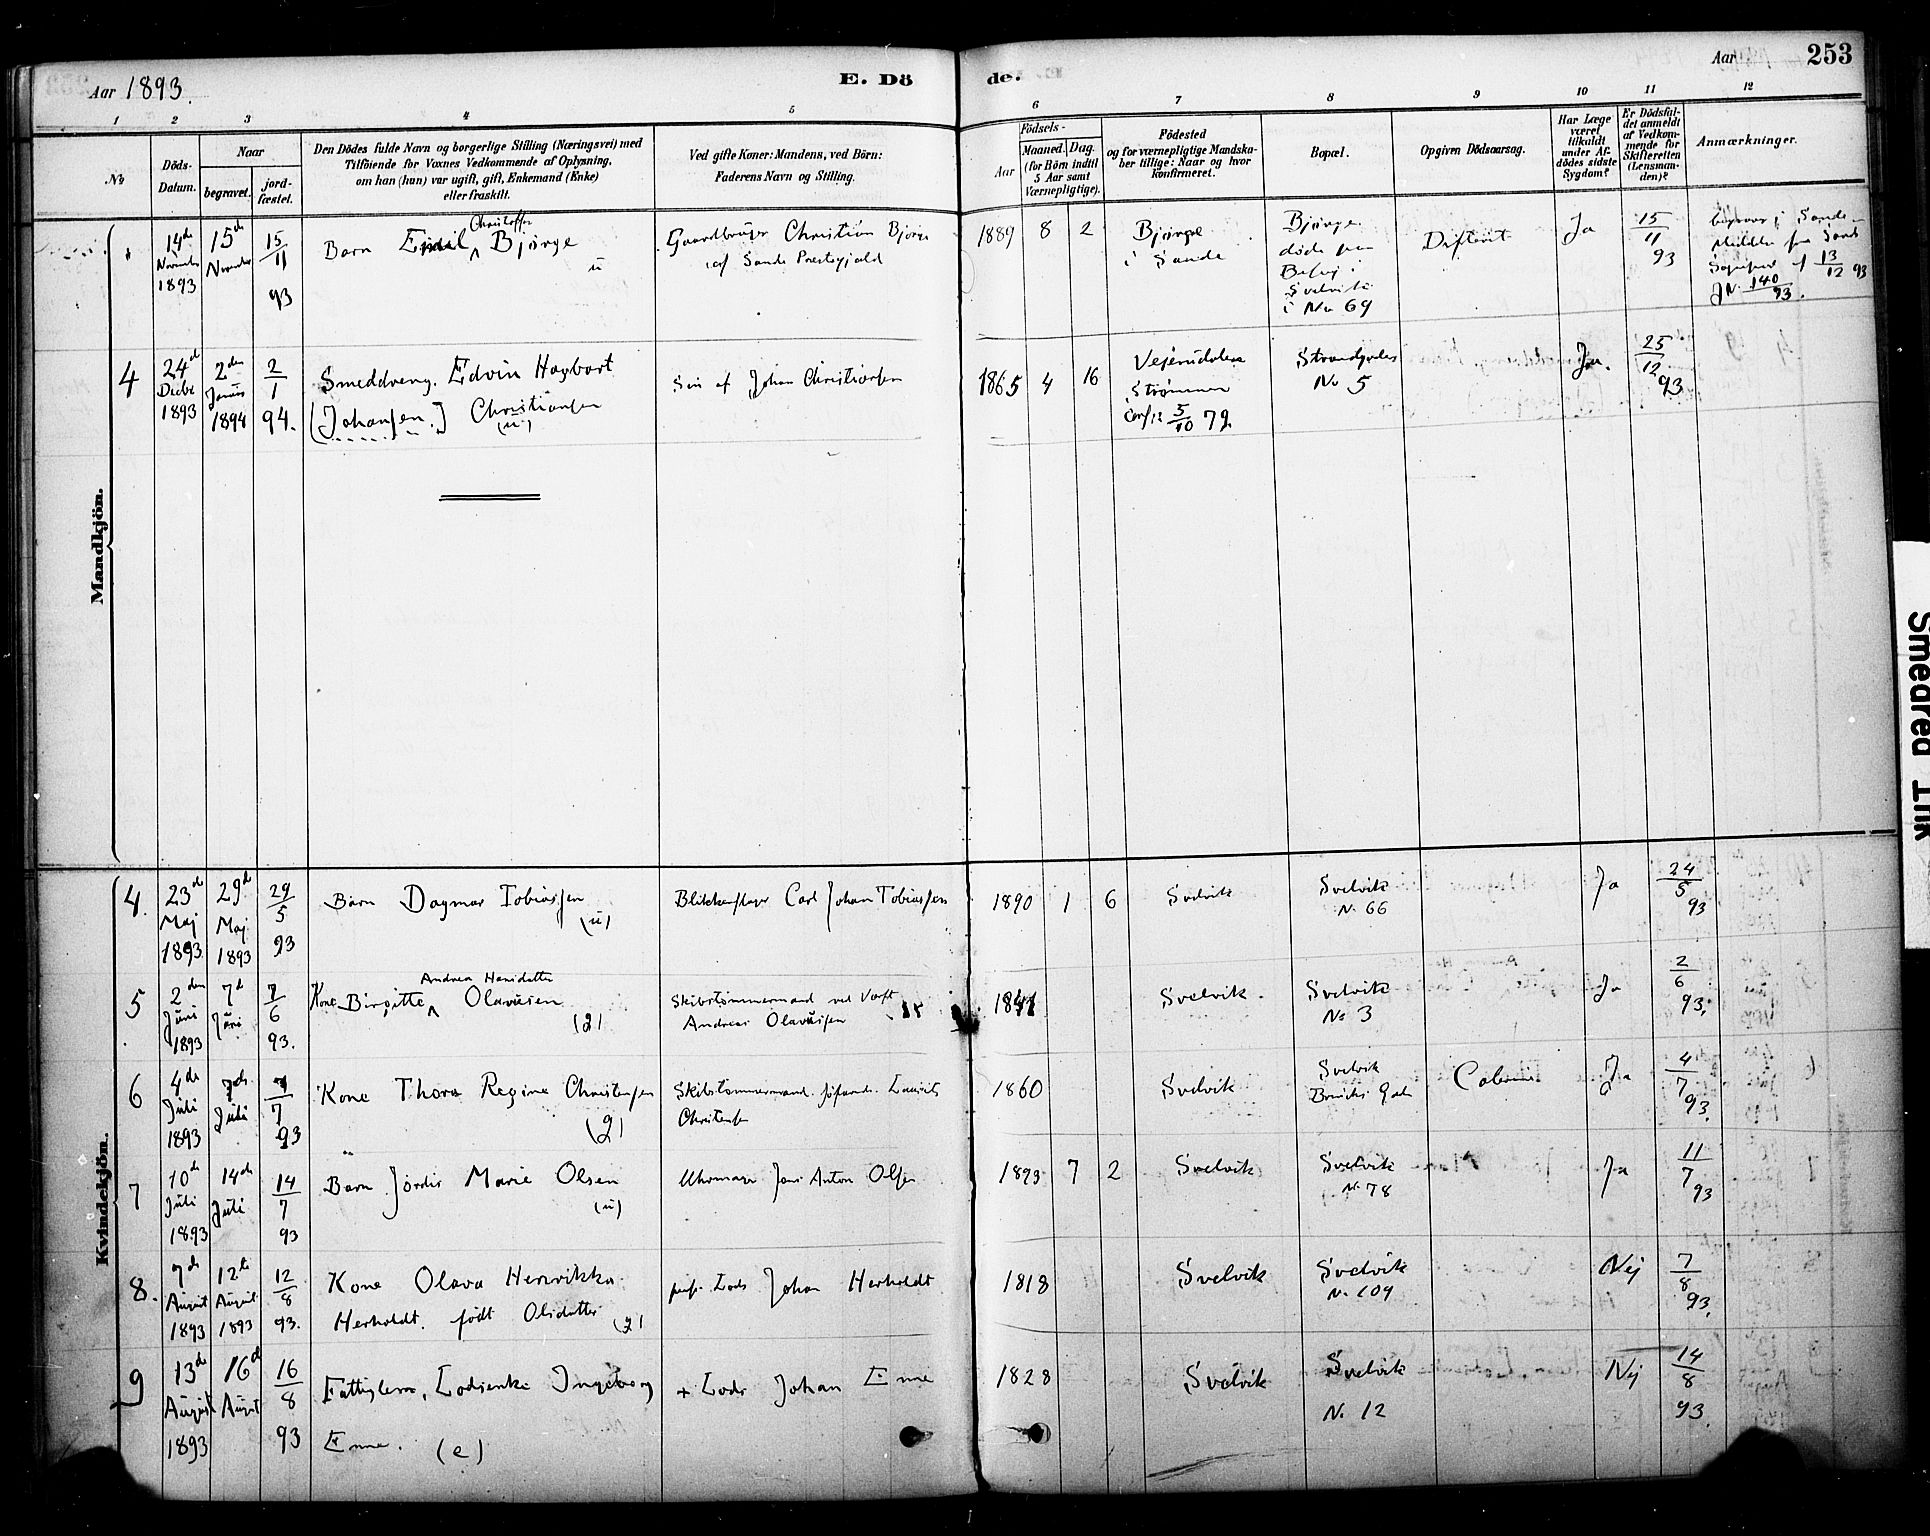 Aar 1893.
E. Dö
de.
Aar
253
1 2 3 4 5 6 7 8 9 10 11 12
No
Döds-Datum.
Naar
begravet.
jord-fæstet.
Den Dödes fulde Navn og borgerlige Stilling (Næringsvei) med
Tilföiende for Voxnes Vedkommende af Oplysning,
om han (hun) var ugift, gift, Enkemand (Enke)
eller fraskilt.
Ved gifte Koner: Mandens, ved Börn:
Faderens Navn og Stilling.
Födsels-
Aar
Maaned. Dag.
(for Börn indtil
5 Aar samt
Værnepligtige).
Födested
og for værnepligtige Mandska-
ber tillige: Naar og hvor
konfirmeret.
Bopæl.
Opgiven Dödsaarsag.
Har Læge
været
tilkaldt
under Af-
dödes sidste
Sygdom?
Er Dödsfal-
det anmeldt
af Vedkom-
mende for
Skifteretten
(Lensman-
den)?
Anmærkninger.
Mandkjön.
14de November 1893
15de November
15/11 93
Barn Emil Christoffer Bjørge
u
Gaardbruger Christian Bjørge
af Sande Prestegjæld
1889 8 2
Bjørge
i Sande
Bjørge
døde paa
Besøg i
Svelvik
i No 69
Difterit
Ja
15/11 93
13/12 93
JN. 140/93.
4
24de Decbr 1893
2den Januar 1894
2/1 94.
Smeddreng. Edvin Hagbart
[Johansen.] Christiansen
(u)
Søn af Johan Christiansen
1865 4 16
Strømmen
Conf: 5/10 79.
No 5
Ja.
25/12 93
Kvindekjön.
4.
23de Maj 1893
29de Maj 1893
29/5 93
Barn Dagmar Tobiassen
(u)
Blikkenslager Carl Johan Tobiassen
1890 1 6
Svelvik
Svelvik
N. 66
Ja
24/5 93
5
2den Juni 1893
7de Juni
7/6 93.
Kone Birgitte Andrea Hansdatter Olausen
(g)
Skibstømmermand ved Værft
Andreas Olausen
1841
Svelvik.
Svelvik
No 3
Ja
2/6 93.
6
4de Juli 1893
7de Juli
7/7 93
Kone Thora Regine Christensen
(g)
Skibstømmermand. Laurits
Christensen
1860
Svelvik
Svelvik
Ja
4/7 93.
7
10de Juli 1893
14de Juli
14/7 93
Barn Jördis Marie Olsen
(u)
Uhrmager Jens Anton Olsen
1893 7 2
Svelvik
Svelvik
N. 78
Ja
11/7 93
8.
7de August 1893
12te August 1893
12/8 93.
Kone Olava Henrikka
Herholdt. født Olsdatter
(g)
Lods Johan Herholdt
1818
Svelvik
Svelvik
N. 109
Nej
7/8 93.
9
13de August 1893
16de August
16/8 93
Fattiglem, Lodsenke Ingeborg
Enne. (e)
+ Lods Johan Enne
1828
Svelvik
Svelvik
N. 12
Nej
14/8 93.
Smeared Ink